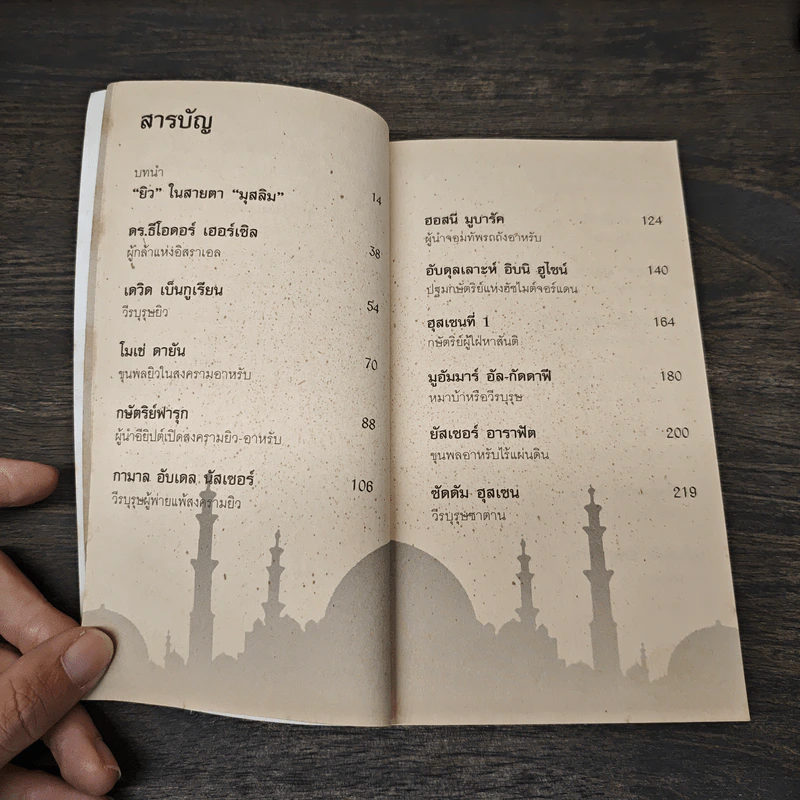 สารบัญ
บทนำ
“ยิว” ในสายตา “มุสลิม” 14
ดร.ธีโอดอร์ เฮอร์เซิล
ผู้กล้าแห่งอิสราเอล 38
เดวิด เบ็นกูเรียน
วีรบุรุษยิว 54
โมเช่ ดายัน
ขุนพลยิวในสงครามอาหรับ 70
กษัตริย์ฟารุก
ผู้นำอียิปต์เปิดสงครามยิว-อาหรับ 88
กามาล อับเดล นัสเซอร์ 106
วีรบุรุษผู้พ่ายแพ้สงครามยิว
ฮอสนี มูบารัค 124
ผู้นำจอมทัพรถถังอาหรับ
อับดุลเลาะห์ อิบนิ ฮูไซน์ 140
ปฐมกษัตริย์แห่งฮัชไมต์จอร์แดน
ฮุสเซนที่ 1 164
กษัตริย์ผู้ใฝ่หาสันติ
มูอัมมาร์ อัล-กัดดาฟี 180
หมาบ้าหรือวีรบุรุษ
ยัสเซอร์ อาราฟัต 200
ขุนพลอาหรับไร้แผ่นดิน
ซัดดัม ฮุสเซน 219
วีรบุรุษซาตาน